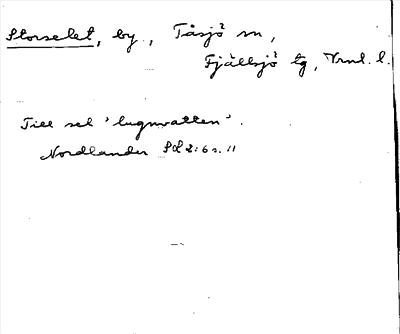 Storselet, by., Tåsjö sn,
Fjällsjö tg, Vrnl. l.
Till sel 'lugnvatten'.
Nordlander SoL 2:6 s. 11